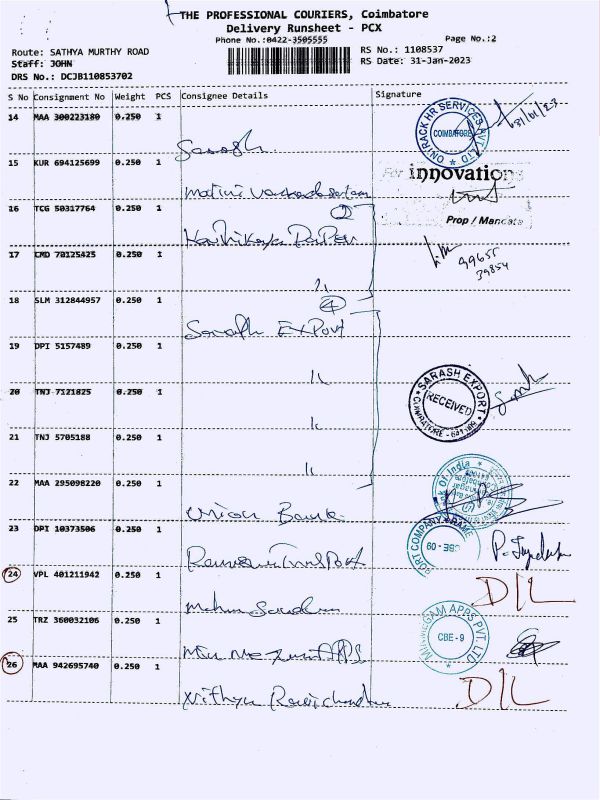 THE PROFESSIONAL COURIERS, Coimbatore
Delivery Runsheet - PCX
Phone No.:0422-3505555 Page No.:2
Route: SATHYA MURTHY ROAD RS No.: 1108537
Staff: JOHN RS Date: 31-Jan-2023
DRS No.: DCJB110853702
S No Consignment No Weight PCS Consignee Details Signature
14 MAA 300223180 0.250 1
31/01/23
ONTRACK HR SERVICES PVT LTD
COIMBATORE
15 KUR 694125699 0.250 1
For innovations
16 TCG 50317764 0.250 1
2
Prop / Mandate
17 CMD 70125425 0.250 1
99655
39854
18 SLM 312844957 0.250 1
4
Sarash Export
19 DPI 5157489 0.250 1
SARASH EXPORT
RECEIVED
20 TNJ 7121825 0.250 1
21 TNJ 5705188 0.250 1
22 MAA 295098220 0.250 1
Of India
Union Bank
23 DPI 10373506 0.250 1
PORT COMPANY
CBE - 09
24 VPL 401211942 0.250 1
D/L
25 TRZ 360032106 0.250 1
APPS PVT. LTD
CBE - 9
26 MAA 942695740 0.250 1
D/L
Nithya Ravichandran